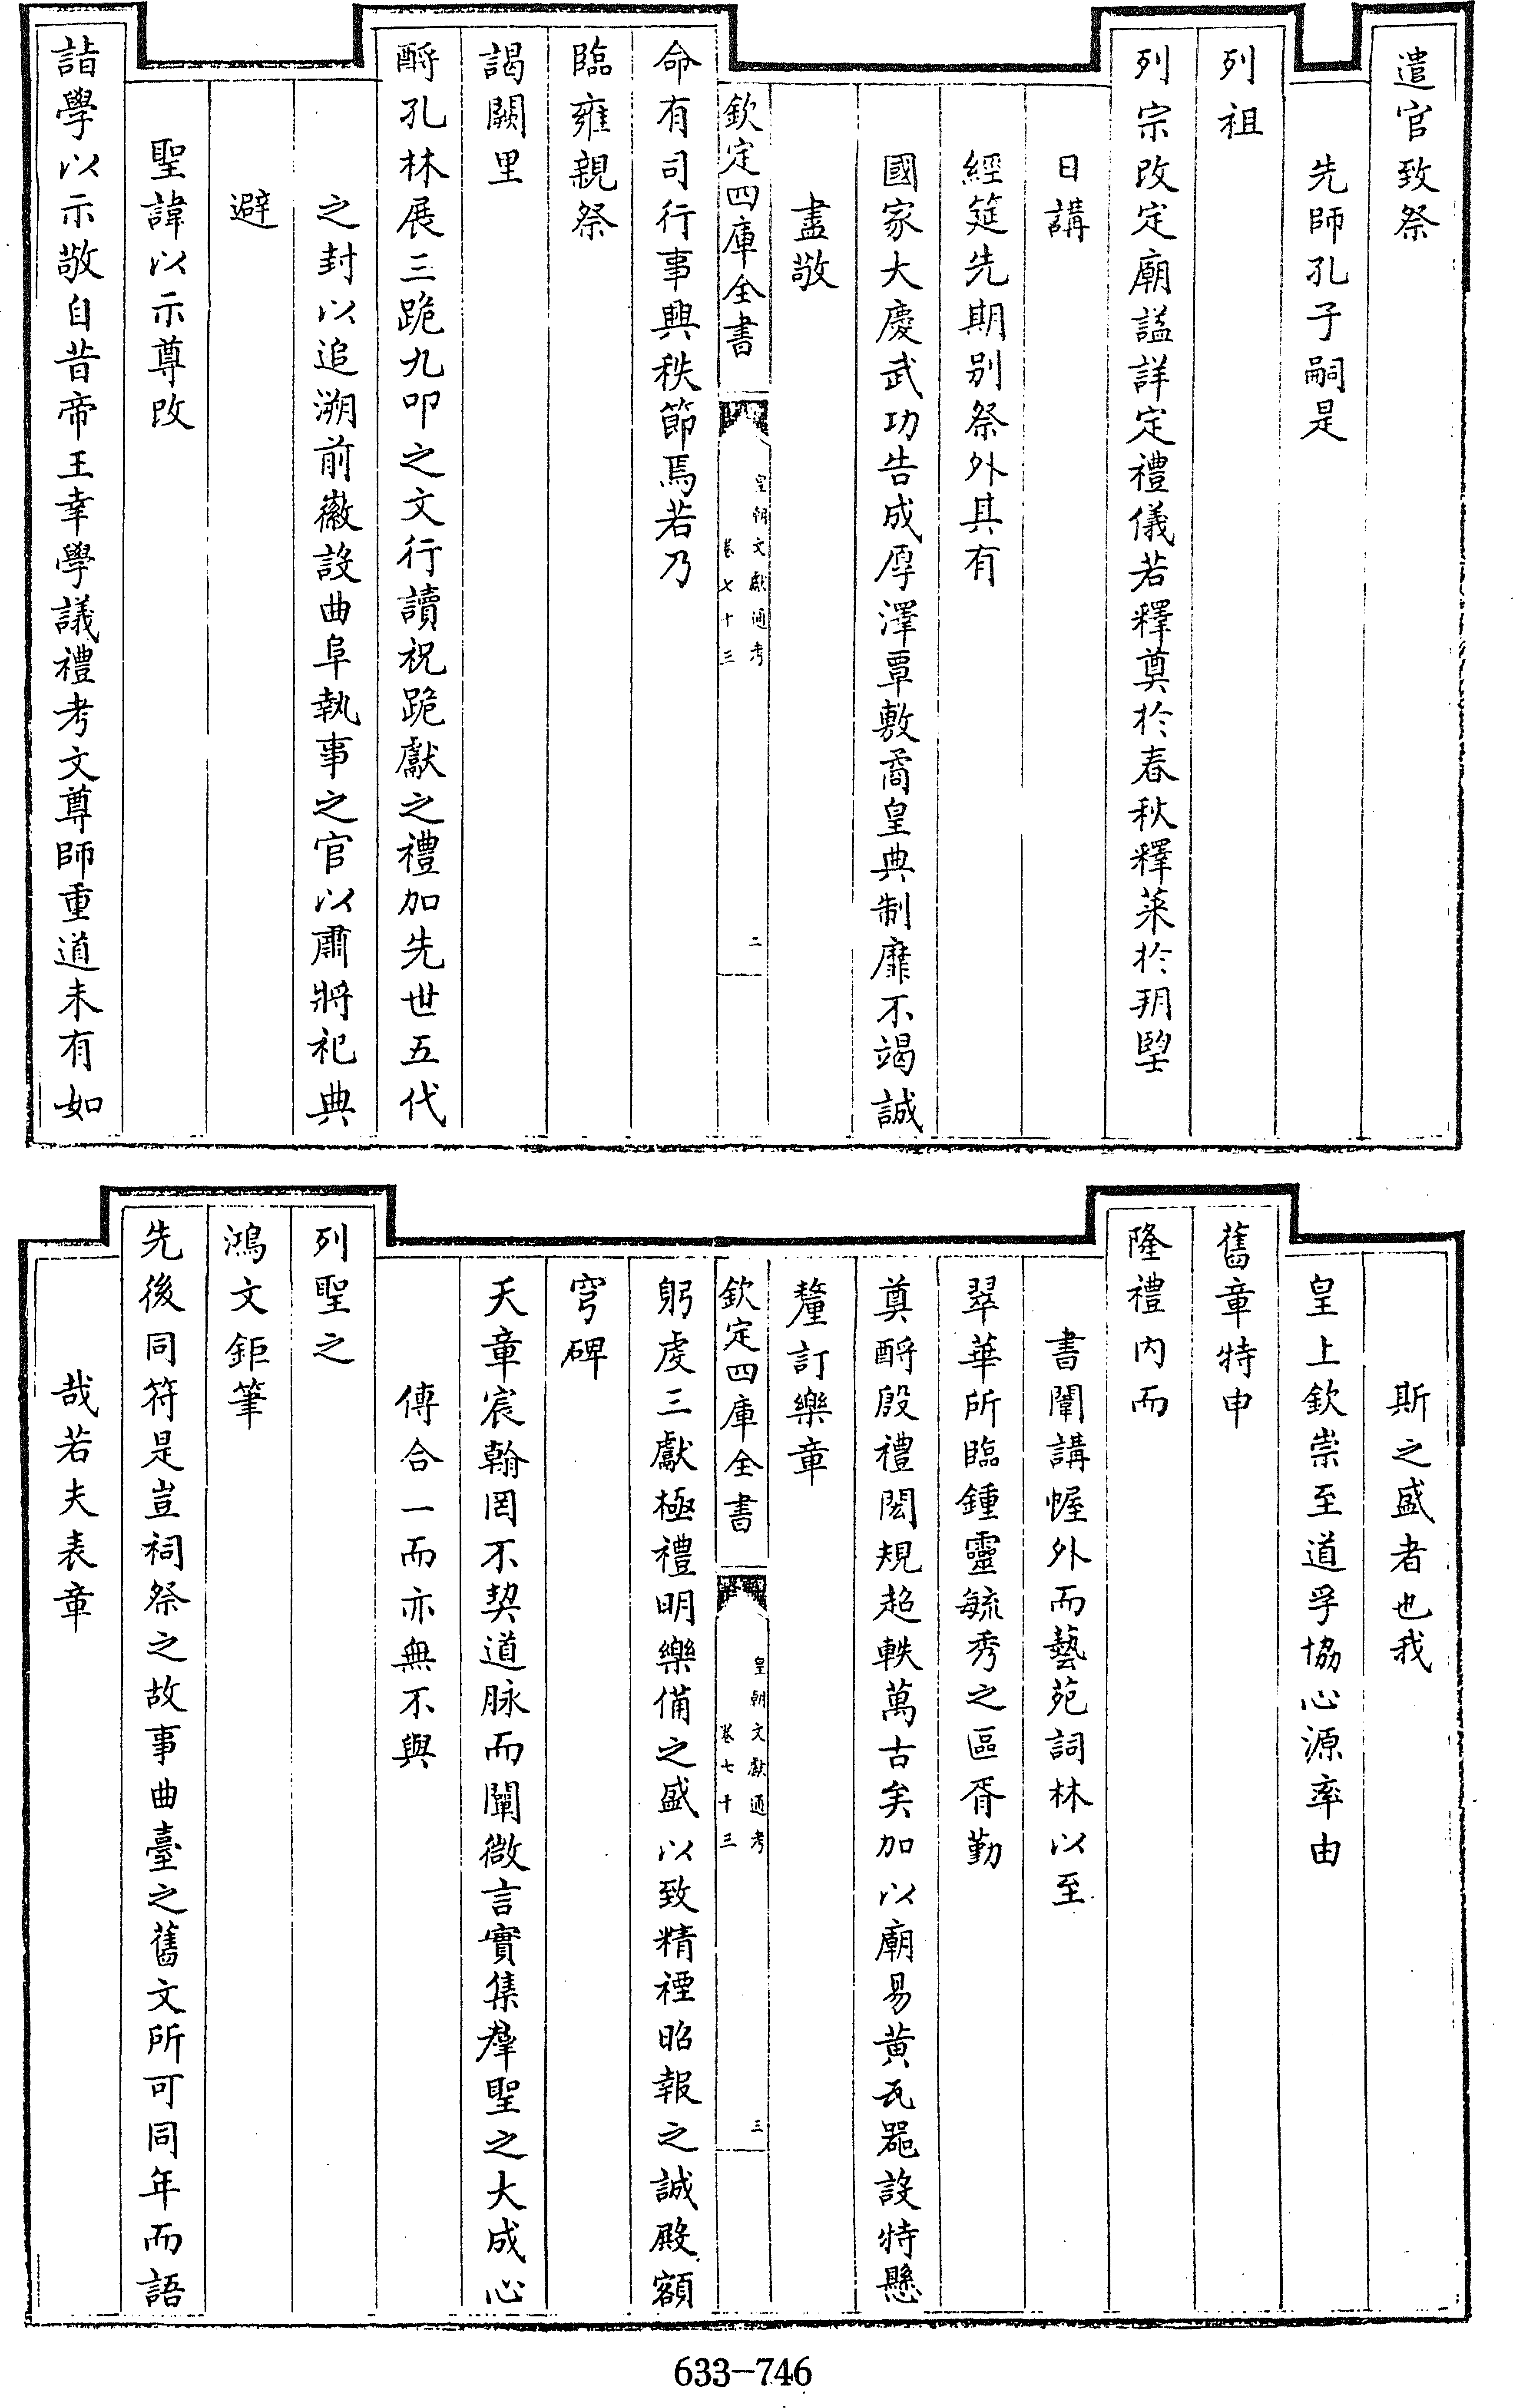 遣官致祭
先師孔子嗣是
列祖
列宗改定廟諡詳定禮儀若釋奠於春秋釋菜於朔朢
日講
經筵先期别祭外其有
國家大慶武功告成厚澤覃敷矞皇典制靡不竭誠
盡敬
欽定四庫全書
皇朝文獻通考
卷七十三
二
命有司行事興秩節焉若乃
臨雍親祭
謁闕里
酹孔林展三跪九叩之文行讀祝跪獻之禮加先世五代
之封以追溯前徽設曲阜執事之官以肅將祀典
避
聖諱以示尊改
詣學以示敬自昔帝王幸學議禮考文尊師重道未有如
斯之盛者也我
皇上欽崇至道孚協心源率由
舊章特申
隆禮内而
書闈講幄外而藝苑詞林以至
翠華所臨鍾靈毓秀之區胥勤
奠酹殷禮閎規超軼萬古矣加以廟易黄瓦器設特懸
釐訂樂章
欽定四庫全書
皇朝文獻通考
卷七十三
三
躬虔三獻極禮明樂備之盛以致精禋昭報之誠殿額
穹碑
天章宸翰罔不契道脉而闡微言實集羣聖之大成心
傳合一而亦無不與
列聖之
鴻文鉅筆
先後同符是豈祠祭之故事曲臺之舊文所可同年而語
哉若夫表章
633-746